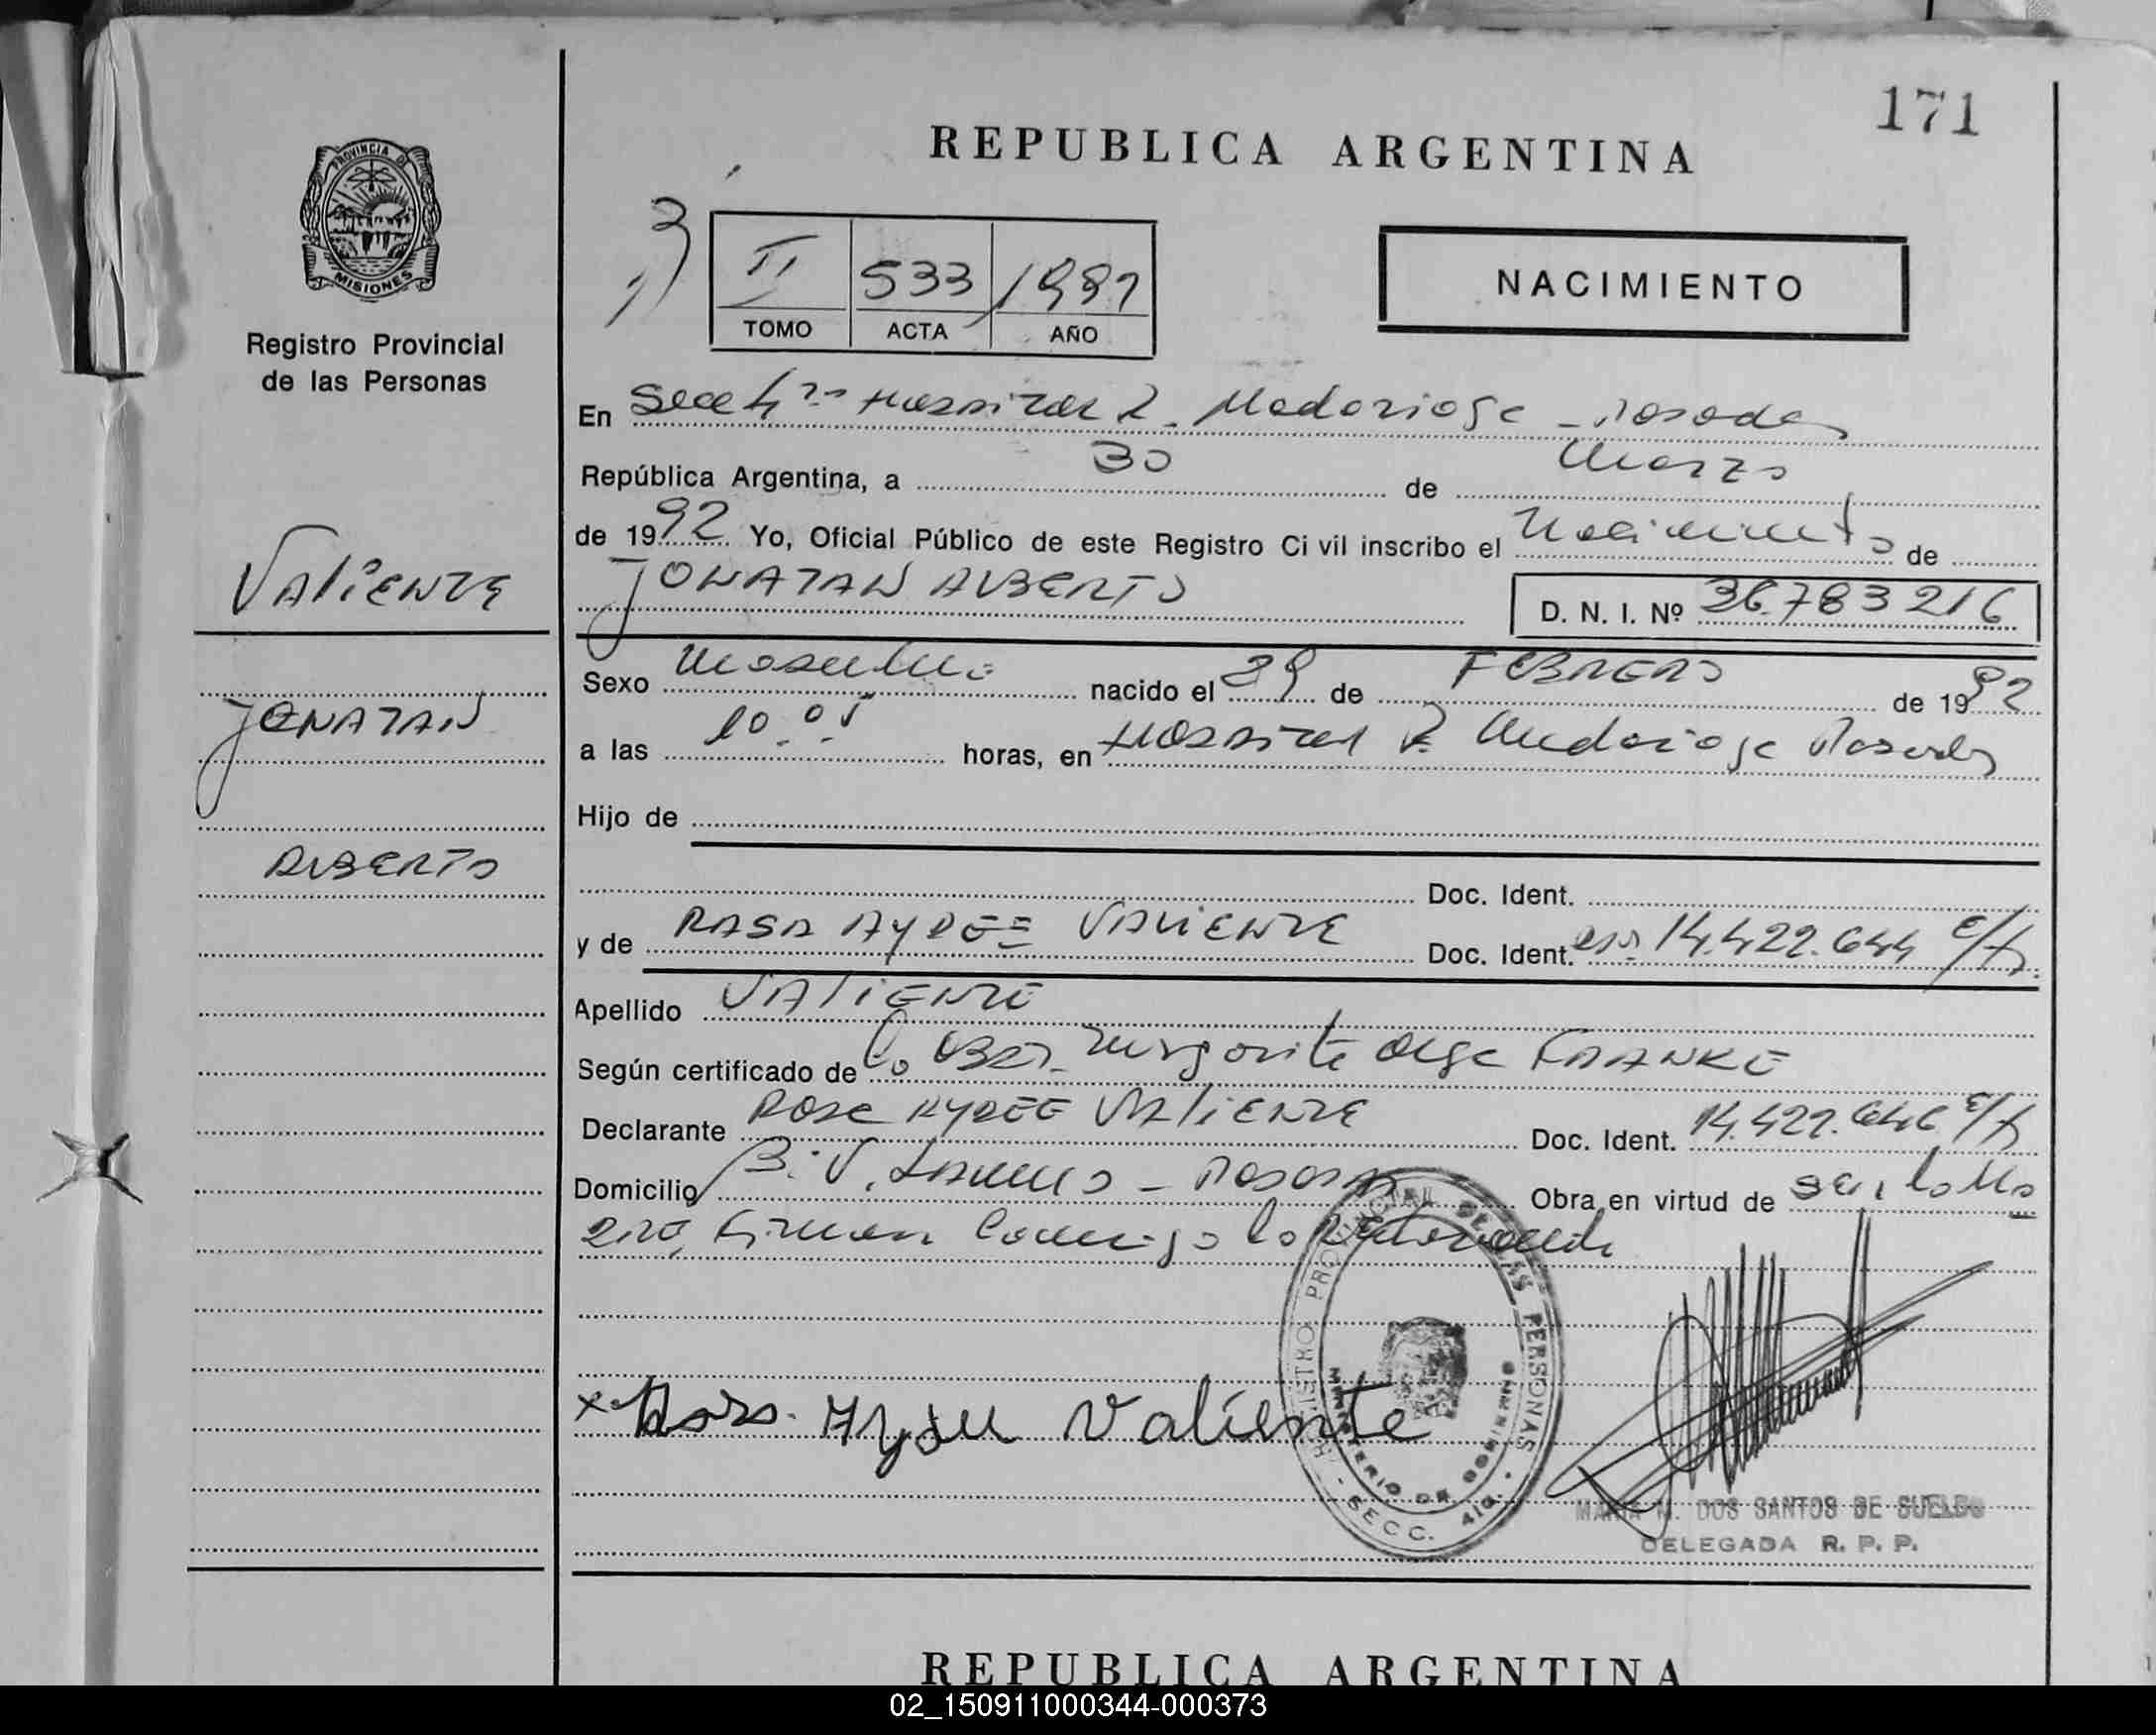 171
REPUBLICA ARGENTINA
PROVINCIA DE
MISIONES
Registro Provincial
de las Personas
II 533
TOMO ACTA AÑO
NACIMIENTO
En Hospital R. Madariaga - Posadas
República Argentina, a 30 de Marzo
de 1992 Yo, Oficial Público de este Registro Civil inscribo el Nacimiento de
VALIENTE
JONATAN ALBERTO D. N. I. Nº 36.783216
Sexo Masculino nacido el 29 de FEBRERO de 1992
JONATAN
a las 10.05 horas, en Hospital R. Madariaga Posadas
Hijo de
ALBERTO
Doc. Ident.
y de ROSA AYDEE VALIENTE Doc. Ident. 14.422.644
Apellido VALIENTE
Según certificado de la Obst. Margarita Olga FRANKE
Declarante ROSA AYDEE VALIENTE Doc. Ident. 14.422.646
Domicilio POSADAS Obra en virtud de
Firman Conmigo la
REGISTRO PROVINCIAL DE LAS PERSONAS
MINISTERIO DE GOBIERNO
SECC.
x Aydee Valiente
MARIA M. DOS SANTOS DE SUELDO
DELEGADA R. P. P.
REPUBLICA ARGENTINA
02_150911000344-000373